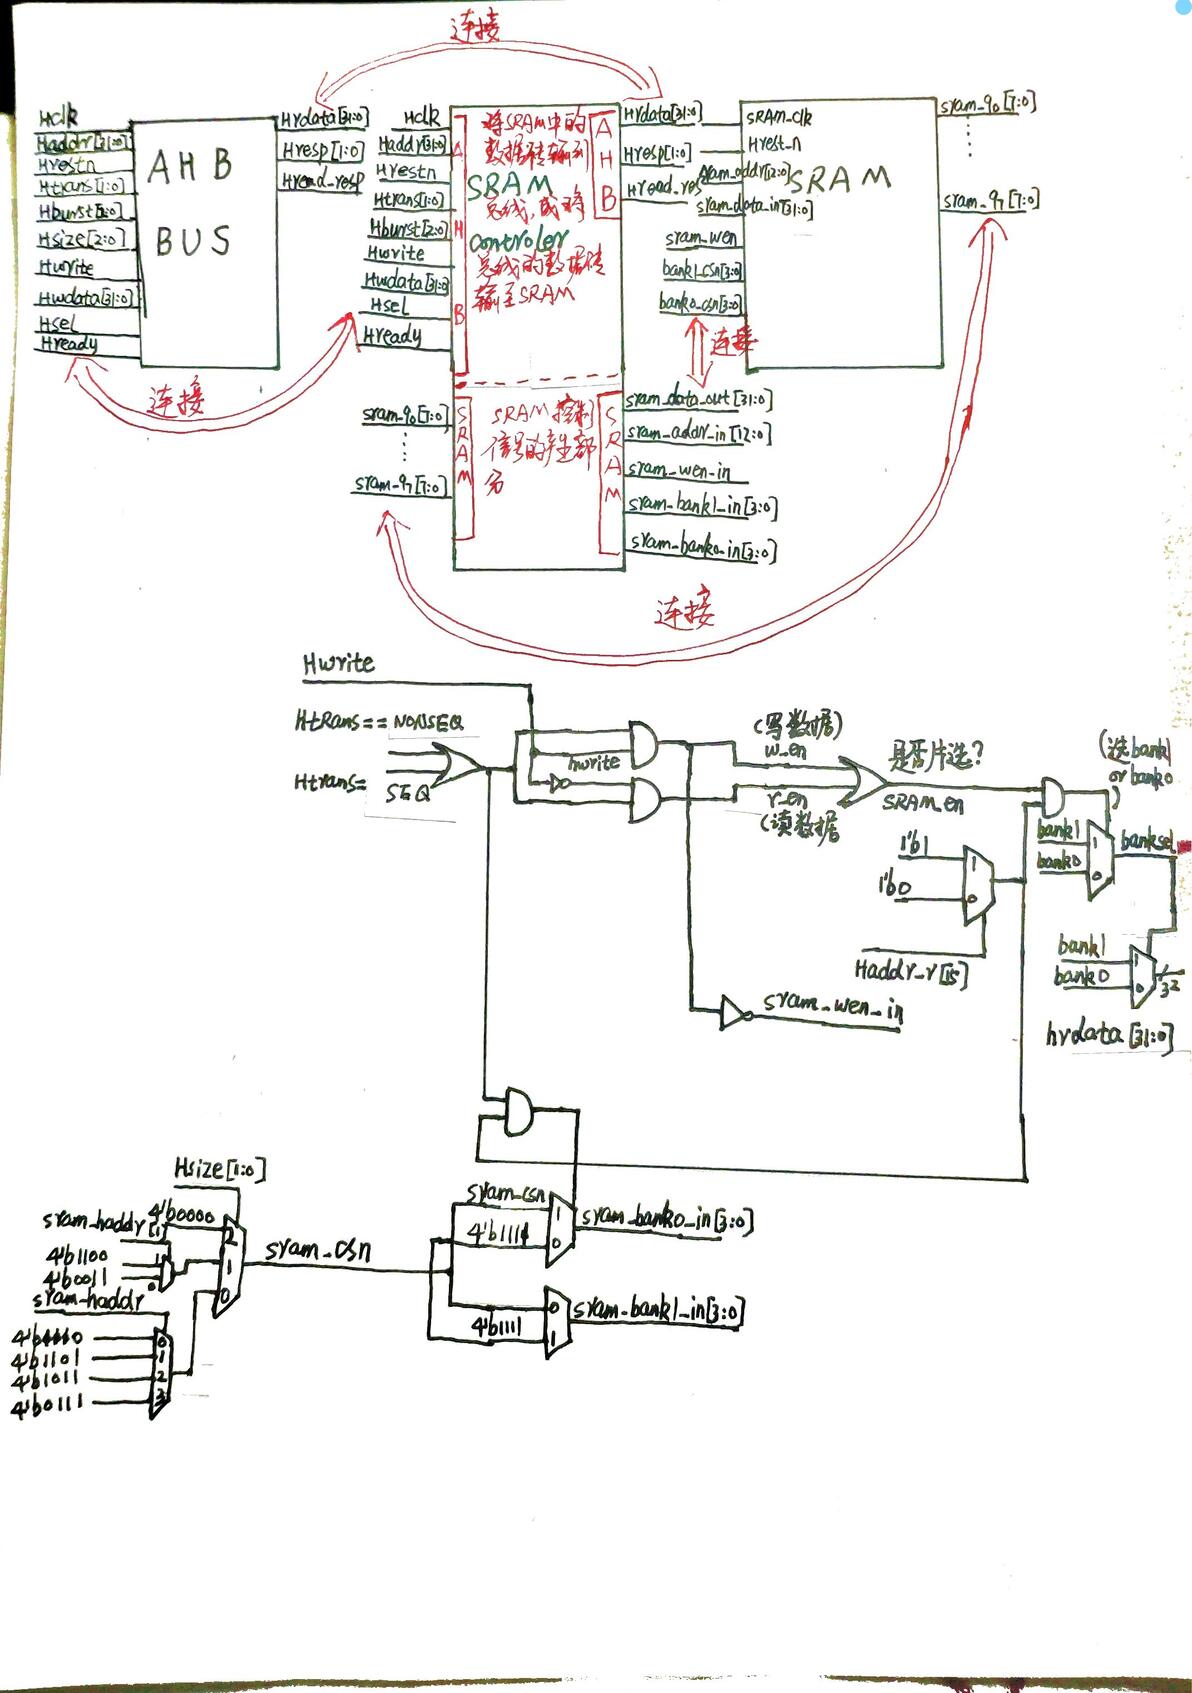 连接
Hclk
Haddr[31:0]
Hrestn
Htrans[1:0]
Hburst[2:0]
Hsize[2:0]
Hwrite
Hwdata[31:0]
Hsel
Hready
AHB
BUS
Hrdata[31:0]
Hresp[1:0]
Hread_resp
连接
Hclk
Haddr[31:0]
Hrestn
Htrans[1:0]
Hburst[2:0]
Hwrite
Hwdata[31:0]
Hsel
Hready
AHB
将SRAM中的
数据转输到
SRAM
总线,或将
controler
总线的数据转
输至SRAM
AHB
Hrdata[31:0]
Hresp[1:0]
Hread_res
sram_q0[7:0]
sram_q7[7:0]
SRAM
SRAM控制
信号的产生部
分
SRAM
sram_data_out[31:0]
sram_addr_in[12:0]
sram_wen_in
sram_bank1_in[3:0]
sram_bank0_in[3:0]
连接
SRAM_clk
Hrest_n
sram_addr[12:0]
sram_data_in[31:0]
sram_wen
bank1_csn[3:0]
bank0_csn[3:0]
SRAM
sram_q0[7:0]
sram_q7[7:0]
连接
Hwrite
Htrans==NONSEQ
Htrans=
SEQ
hwrite
(写数据)
w_en
r_en
(读数据
是否片选?
SRAM_en
(选bank1
or bank0
)
1'b1
1
1'b0
0
Haddr_r[15]
bank1
1
bank0
0
banksel
bank1
1
bank0
0
32
hrdata[31:0]
sram_wen_in
Hsize[1:0]
4'b0000
2
sram_haddr[1
4'b1100
1
4'b0011
0
1
0
sram_haddr
4'b1110
0
4'b1101
1
4'b1011
2
4'b0111
3
sram_csn
sram_csn
1
4'b1111
0
sram_bank0_in[3:0]
0
4'b1111
1
sram_bank1_in[3:0]